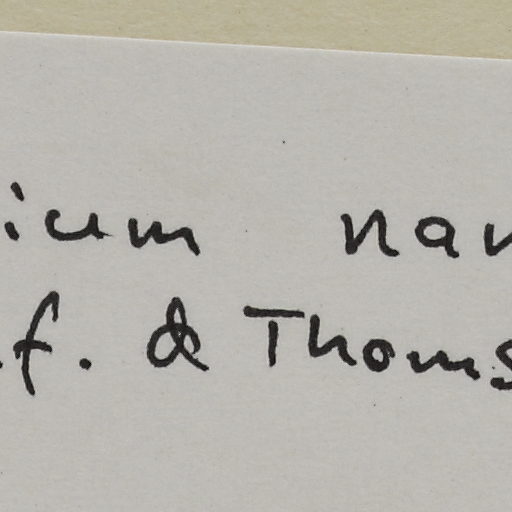 icum nan
.f. & Thoms